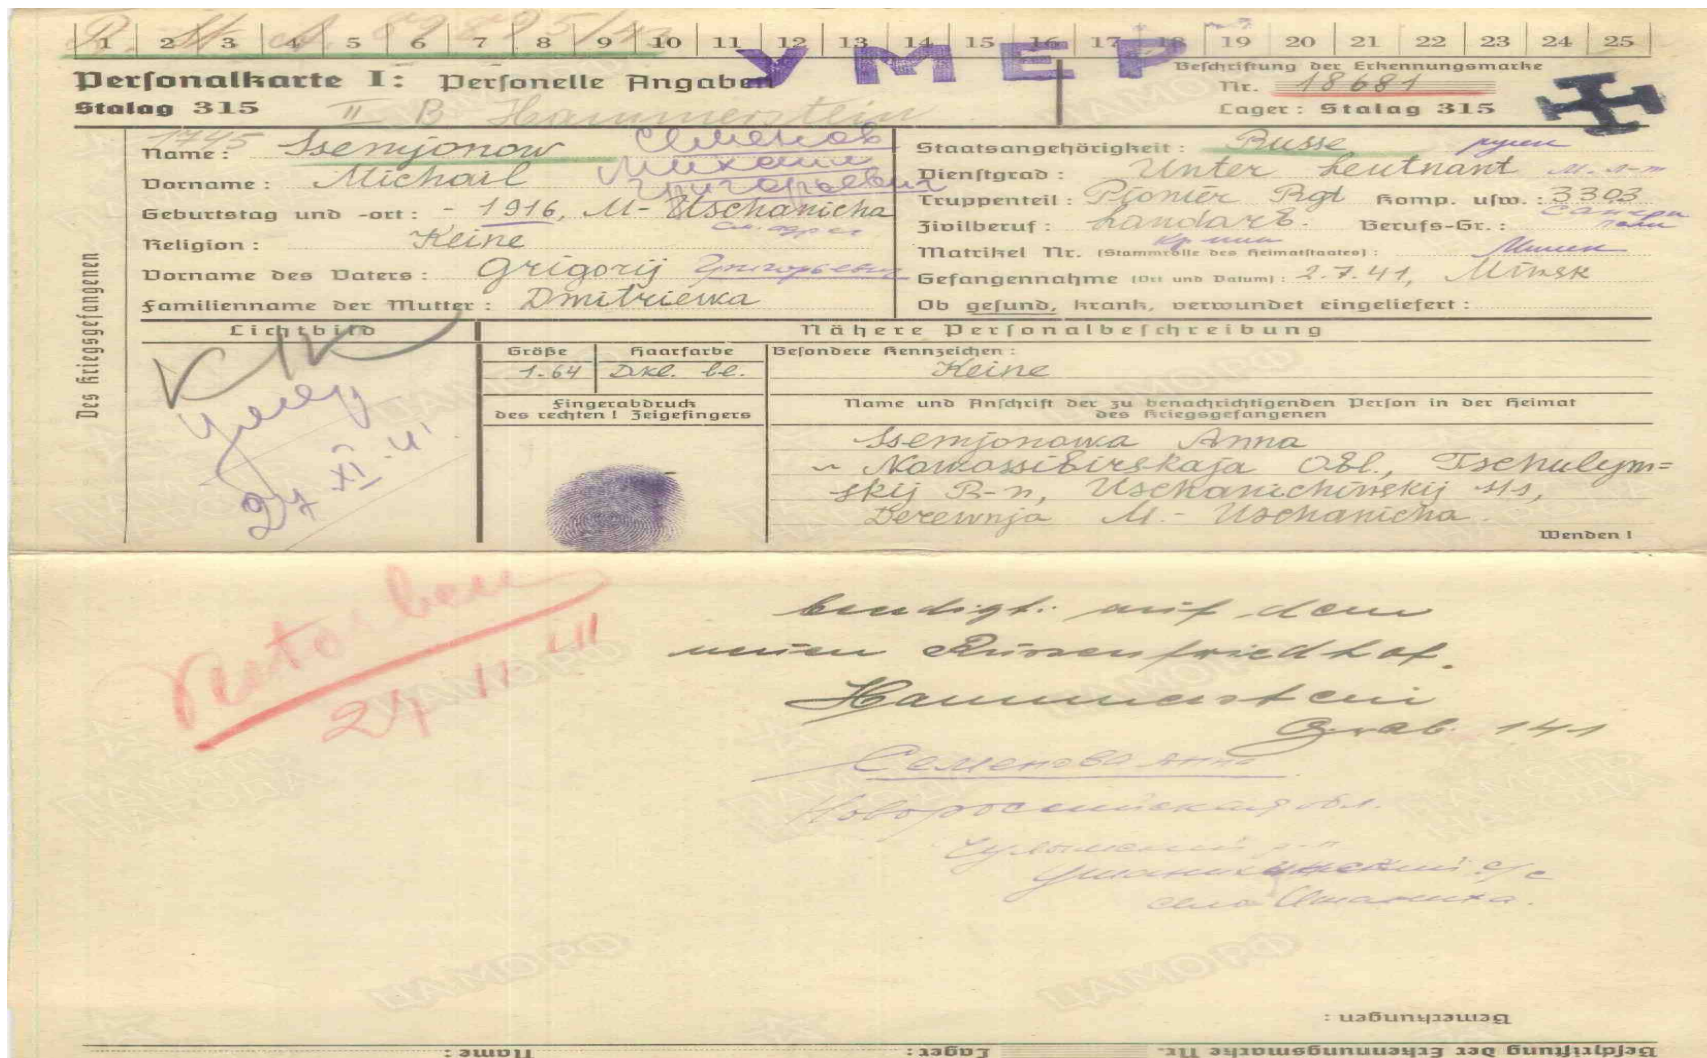 1 2 3 4 5 6 7 8 9 10 11 12 13 14 15 16 17 18 19 20 21 22 23 24 25
УМЕР
Personalkarte I: Personelle Angaben
Beschriftung der Erkennungsmarke
Nr. 18681
Stalag 315 II B Hammerstein
Lager: Stalag 315
Des Kriegsgefangenen
1745
Name: Ssemjonow Семенов
Vorname: Michail Михаил
Григорьевич
Geburtstag und -ort: - 1916, M-Uschanicha
Religion: Keine
Vorname des Vaters: Grigorij Григорьевич
Familienname der Mutter: Dmitriewa
Staatsangehörigkeit: Russe
Dienstgrad: Unter Leutnant м. л-т
Truppenteil: Pionier Rgt Komp. usw.: 3303
Zivilberuf: Landarb. Berufs-Gr.:
Matrikel Nr. (Stammrolle des Heimatstaates): Минск
Gefangennahme (Ort und Datum): 2.7.41, Minsk
Ob gesund, krank, verwundet eingeliefert:
Lichtbild
Умер
27 XI-41
Nähere Personalbeschreibung
Größe Haarfarbe Besondere Kennzeichen:
1.64 Dkl. bl. Keine
Fingerabdruck
des rechten! Zeigefingers
Name und Anschrift der zu benachrichtigenden Person in der Heimat
des Kriegsgefangenen
Ssemjonowa Anna
Nowossibirskaja Obl., Tschulym=
skij R-n, Uschanichinskij s/s,
Derewnja M.-Uschanicha
Wenden!
27 11 41
beerdigt: auf dem
neuen Russenfriedhof.
Hammerstein
Grab. 141
Семенова Анна
Новоросийская обл.
Чулымский р-н
с/с
село Ушаниха.
Bemerkungen:
Name: Lager: Beschriftung der Erkennungsmarke Nr.
ЦАМО РФ